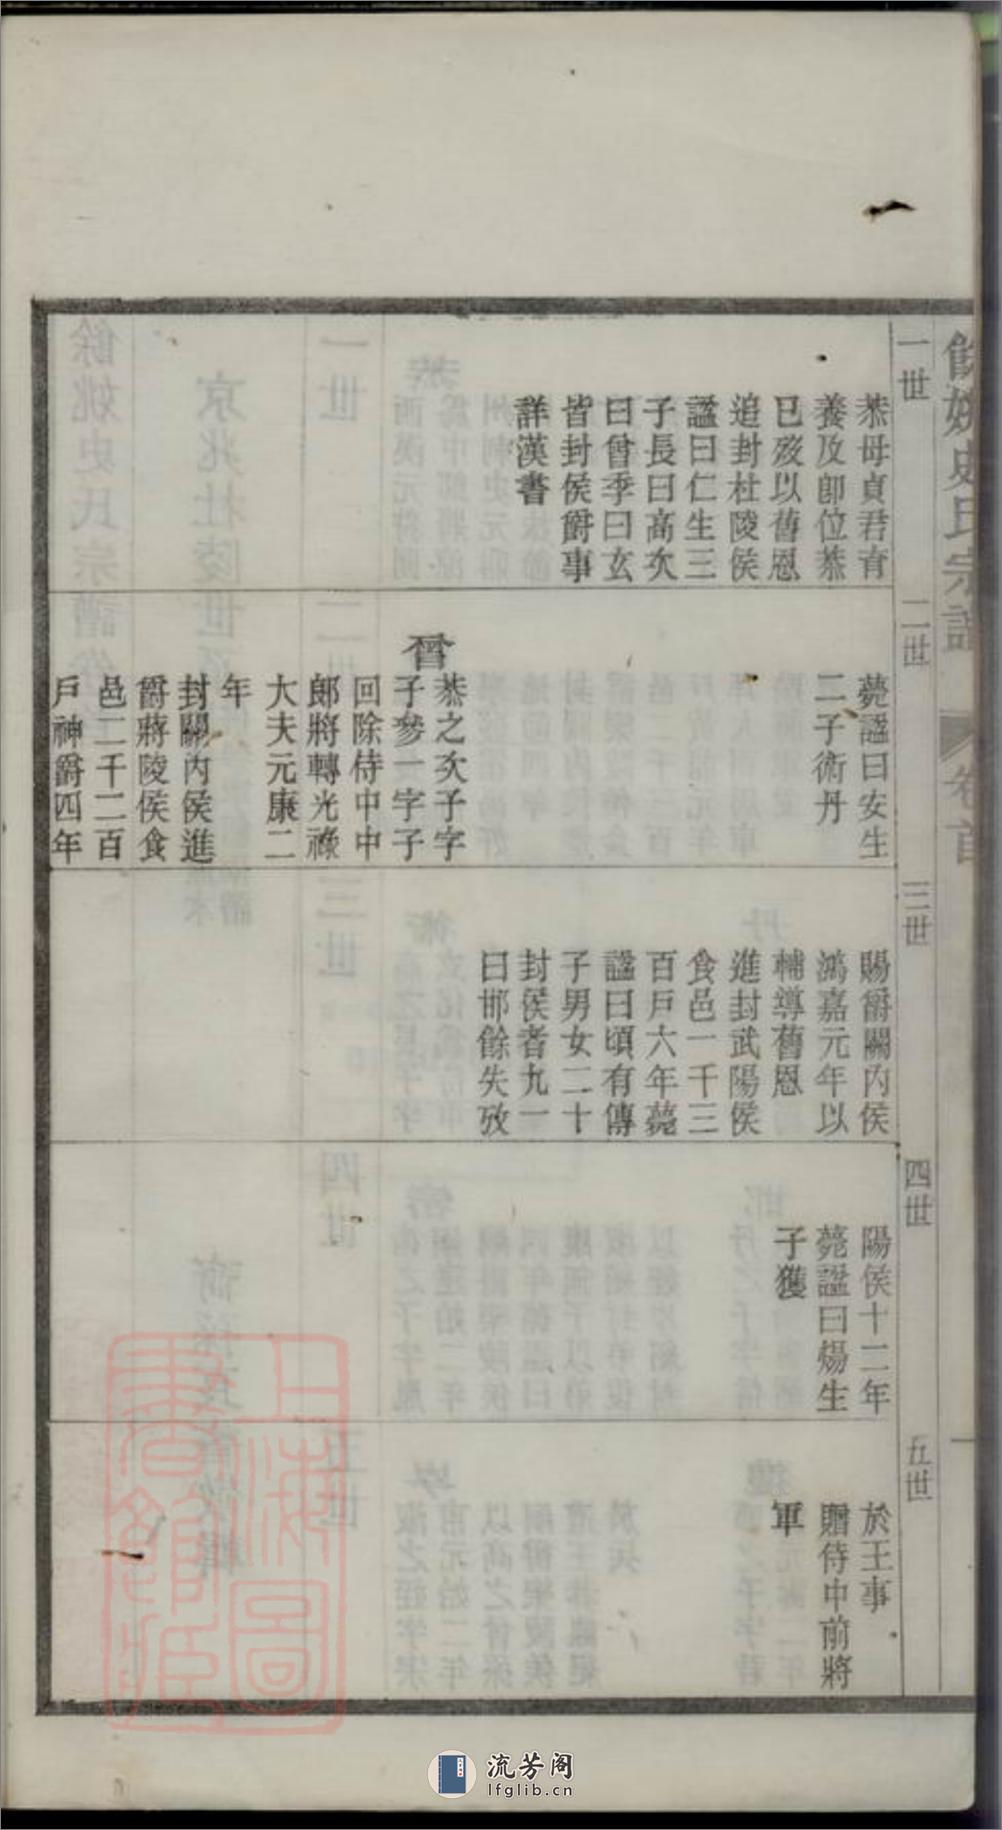 餘姚史氏宗譜 卷首
一世
恭母貞君育
養及卽位恭
已歿以舊恩
追封杜陵侯
諡曰仁生三
子長曰高次
曰曾季曰玄
皆封侯爵事
詳漢書
二世
薨諡曰安生
二子術丹
曾
恭之次子字
子參一字子
回除侍中中
郎將轉光祿
大夫元康二
年
封關內侯進
爵蔣陵侯食
邑二千二百
戶神爵四年
三世
賜爵關內侯
鴻嘉元年以
輔導舊恩
進封武陽侯
食邑一千三
百戶六年薨
諡曰頃有傳
子男女二十
封侯者九一
曰邯餘失攷
四世
陽侯十二年
薨諡曰煬生
子獲
五世
於王事
贈侍中前將
軍
一
上海圖書館藏
流芳阁
lfglib.cn